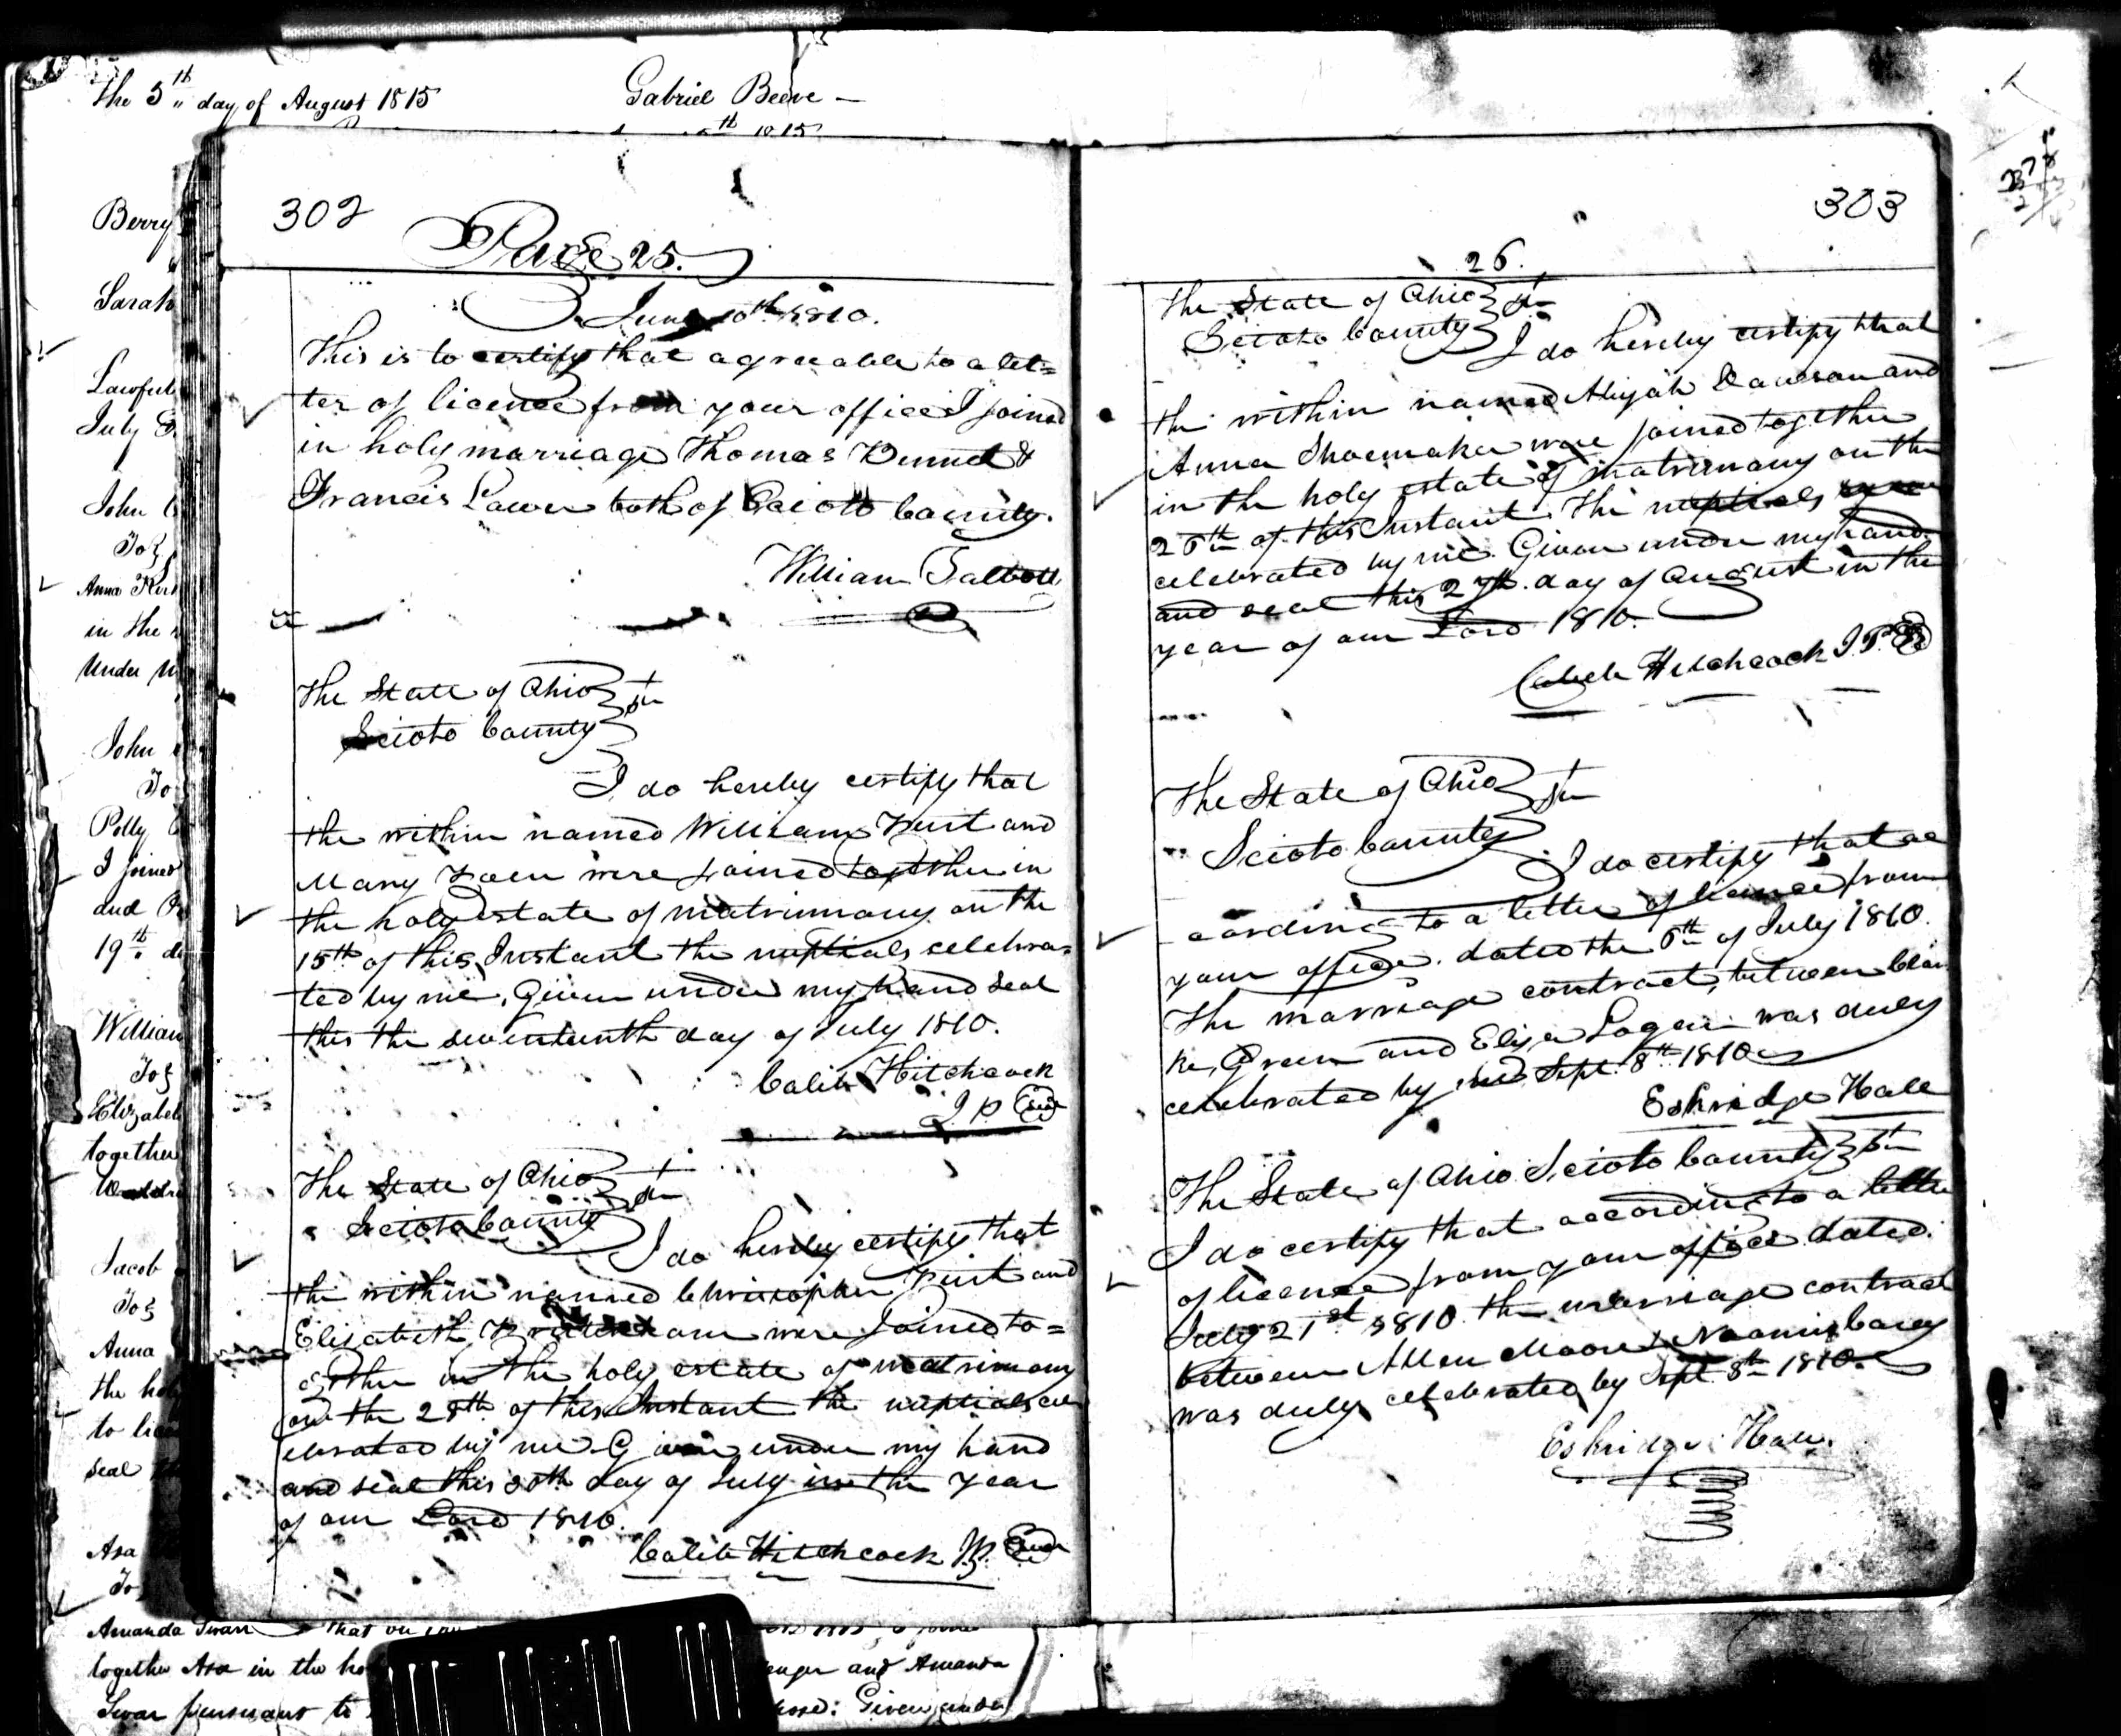 the 5th day of August 1815
Gabriel Beeve —
Berry
Sarah
Lawful
July
John
To
Anna
in the
Under
John
To
Polly
I joined
and
19th
William
To
Elizabeth
together
Jacob
To
Anna
the
to
seal
Asa
To
Amanda Swan that on
together Asa in the
and Amanda
Swan pursuant to
Given under
302
Page 25.
June 10th 1810.
This is to certify that agreeable to a let=
ter of licence from your office I joined
in holy marriage Thomas &
Francis both of Scioto County.
William Talbott
The State of Ohio
Scioto County
I do hereby certify that
the within named William and
Mary were joined together in
the holy estate of matrimony on the
15th of this Instant the nuptials celebra=
ted by me. Given under my hand seal
this the seventeenth day of July 1810.
Caleb Hitchcock
J P
The State of Ohio
Scioto County
I do hereby certify that
the within named Christopher and
Elizabeth were Joined to=
gether in the holy estate of matrimony
on the 28th of this Instant the nuptials cel
ebrated by me Given under my hand
and seal this 30th day of July in the year
of our Lord 1810.
Caleb Hitchcock JP.
303
26.
The State of Ohio
Scioto County
I do hereby certify that
the within named Abijah and
Anna Shoemaker were joined together
in the holy estate of matrimony on the
26th of this Instant. The nuptials
celebrated by me. Given under my hand
and seal this 27th day of August in the
year of our Lord 1810.
Caleb Hitchcock J.P.
The State of Ohio
Scioto County
I do certify that ac
cording to a letter of licence from
your office. dated the 6th of July 1810.
The marriage contract, between
Green and Eliza Logan was duly
celebrated by me Sept. 8th 1810
Eskridge Hall
The State of Ohio Scioto County
I do certify that according to a letter
of licence from your office dated.
July 21st 1810 the marriage contract
between Allen Moore & Naomi
was duly celebrated by Sept 8th 1810.
Eskridge Hall.